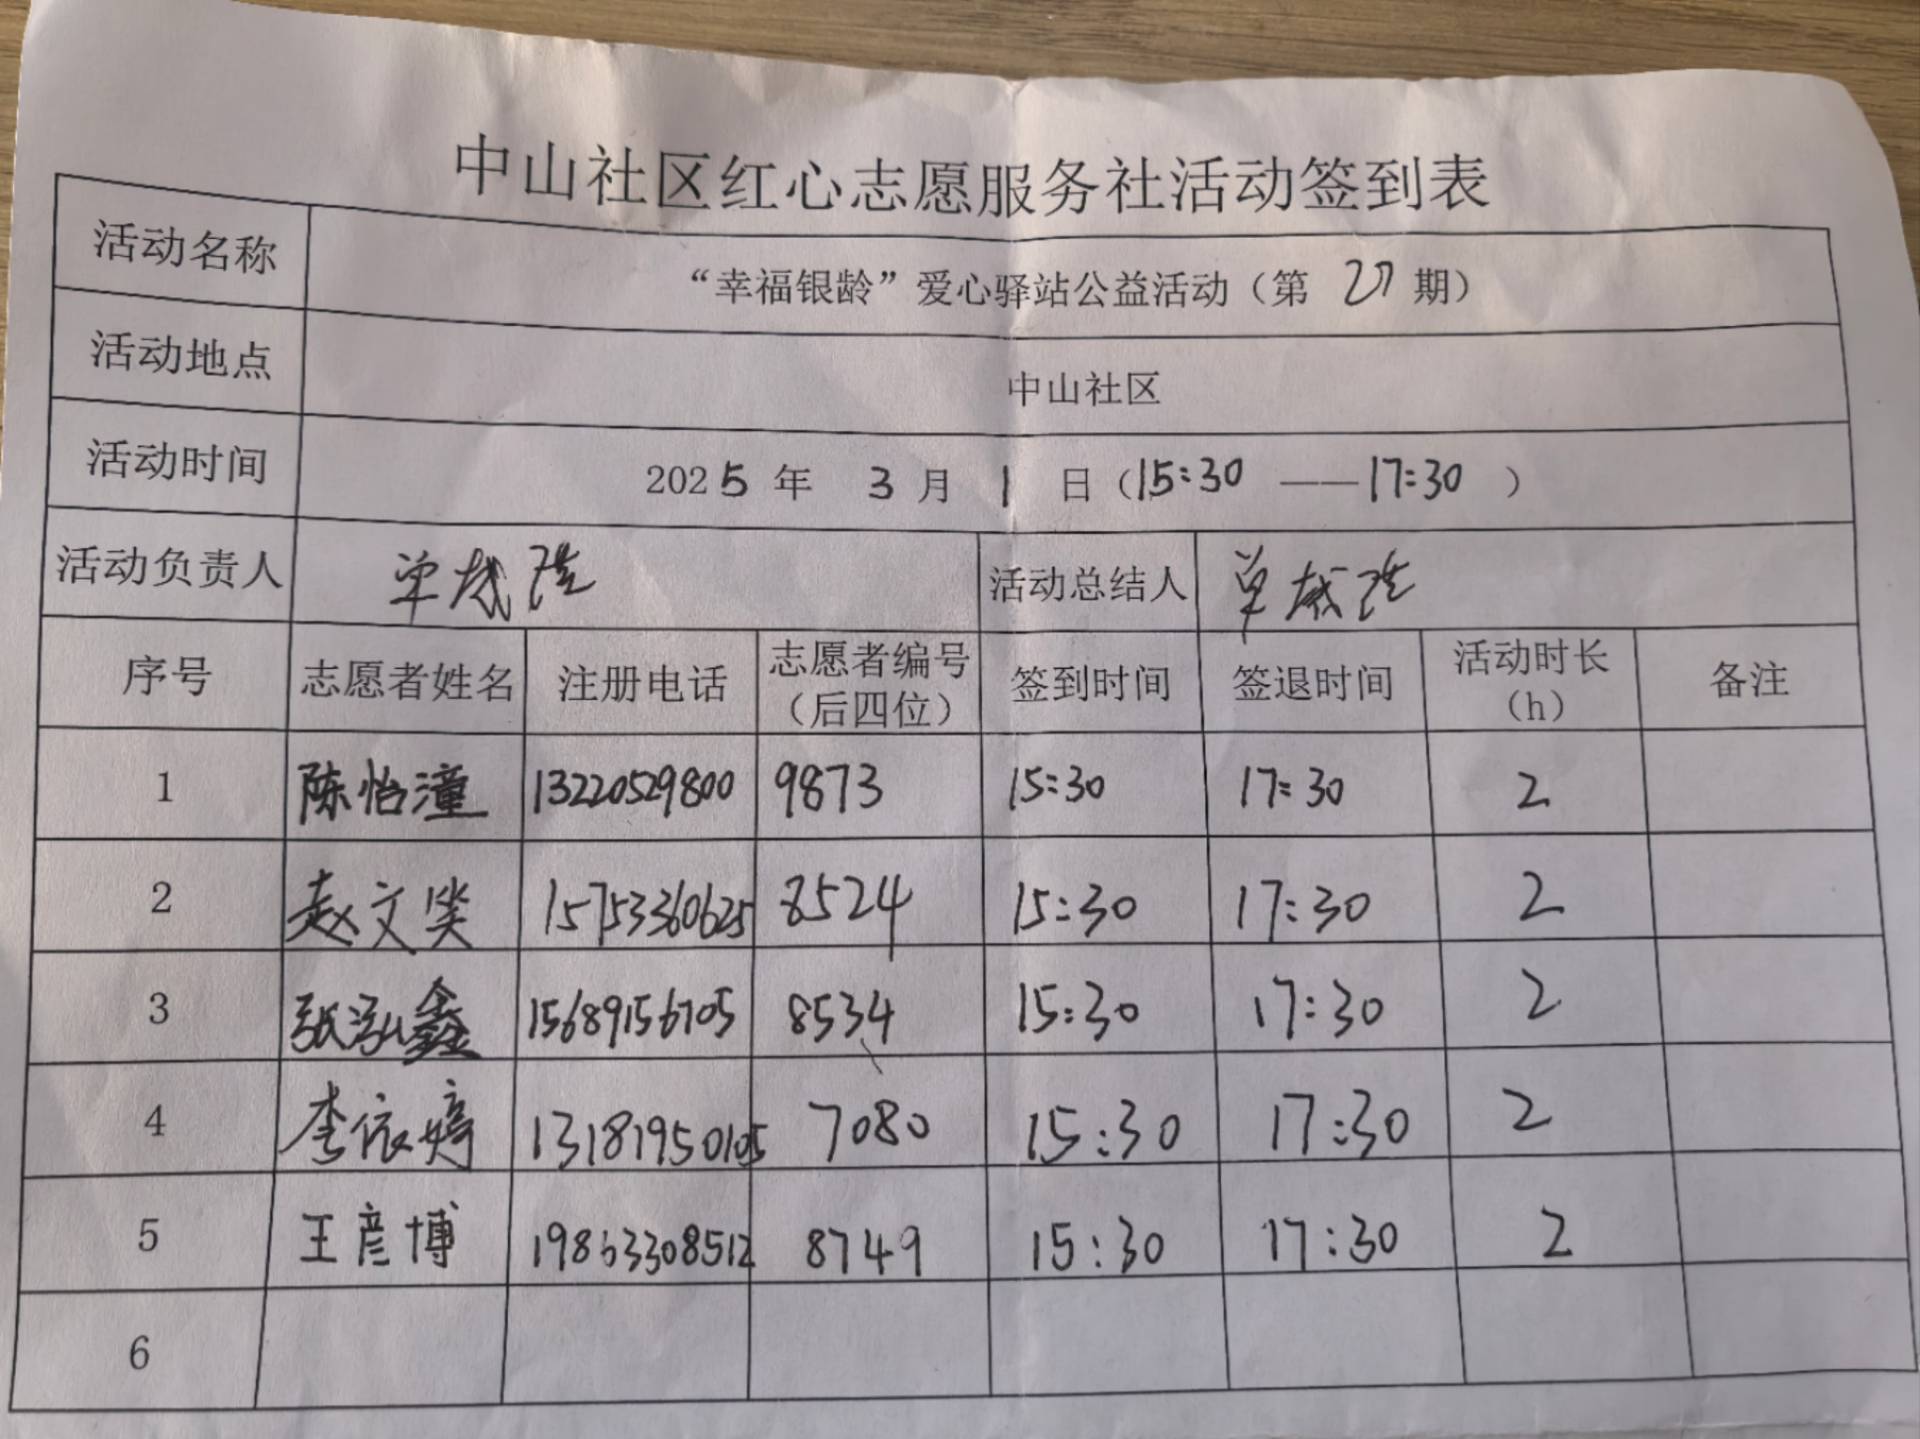 中山社区红心志愿服务社活动签到表
活动名称 “幸福银龄”爱心驿站公益活动（第 27 期）
活动地点 中山社区
活动时间 2025 年 3 月 1 日（15:30 ——17:30 ）
活动负责人 单 活动总结人 单
序号 志愿者姓名 注册电话 志愿者编号（后四位） 签到时间 签退时间 活动时长（h） 备注
1 陈怡潼 13220529800 9873 15:30 17:30 2
2 赵文笑 15753360625 8524 15:30 17:30 2
3 张泓鑫 15689156705 8534 15:30 17:30 2
4 李依婷 13181950105 7080 15:30 17:30 2
5 王彦博 19863308512 8749 15:30 17:30 2
6